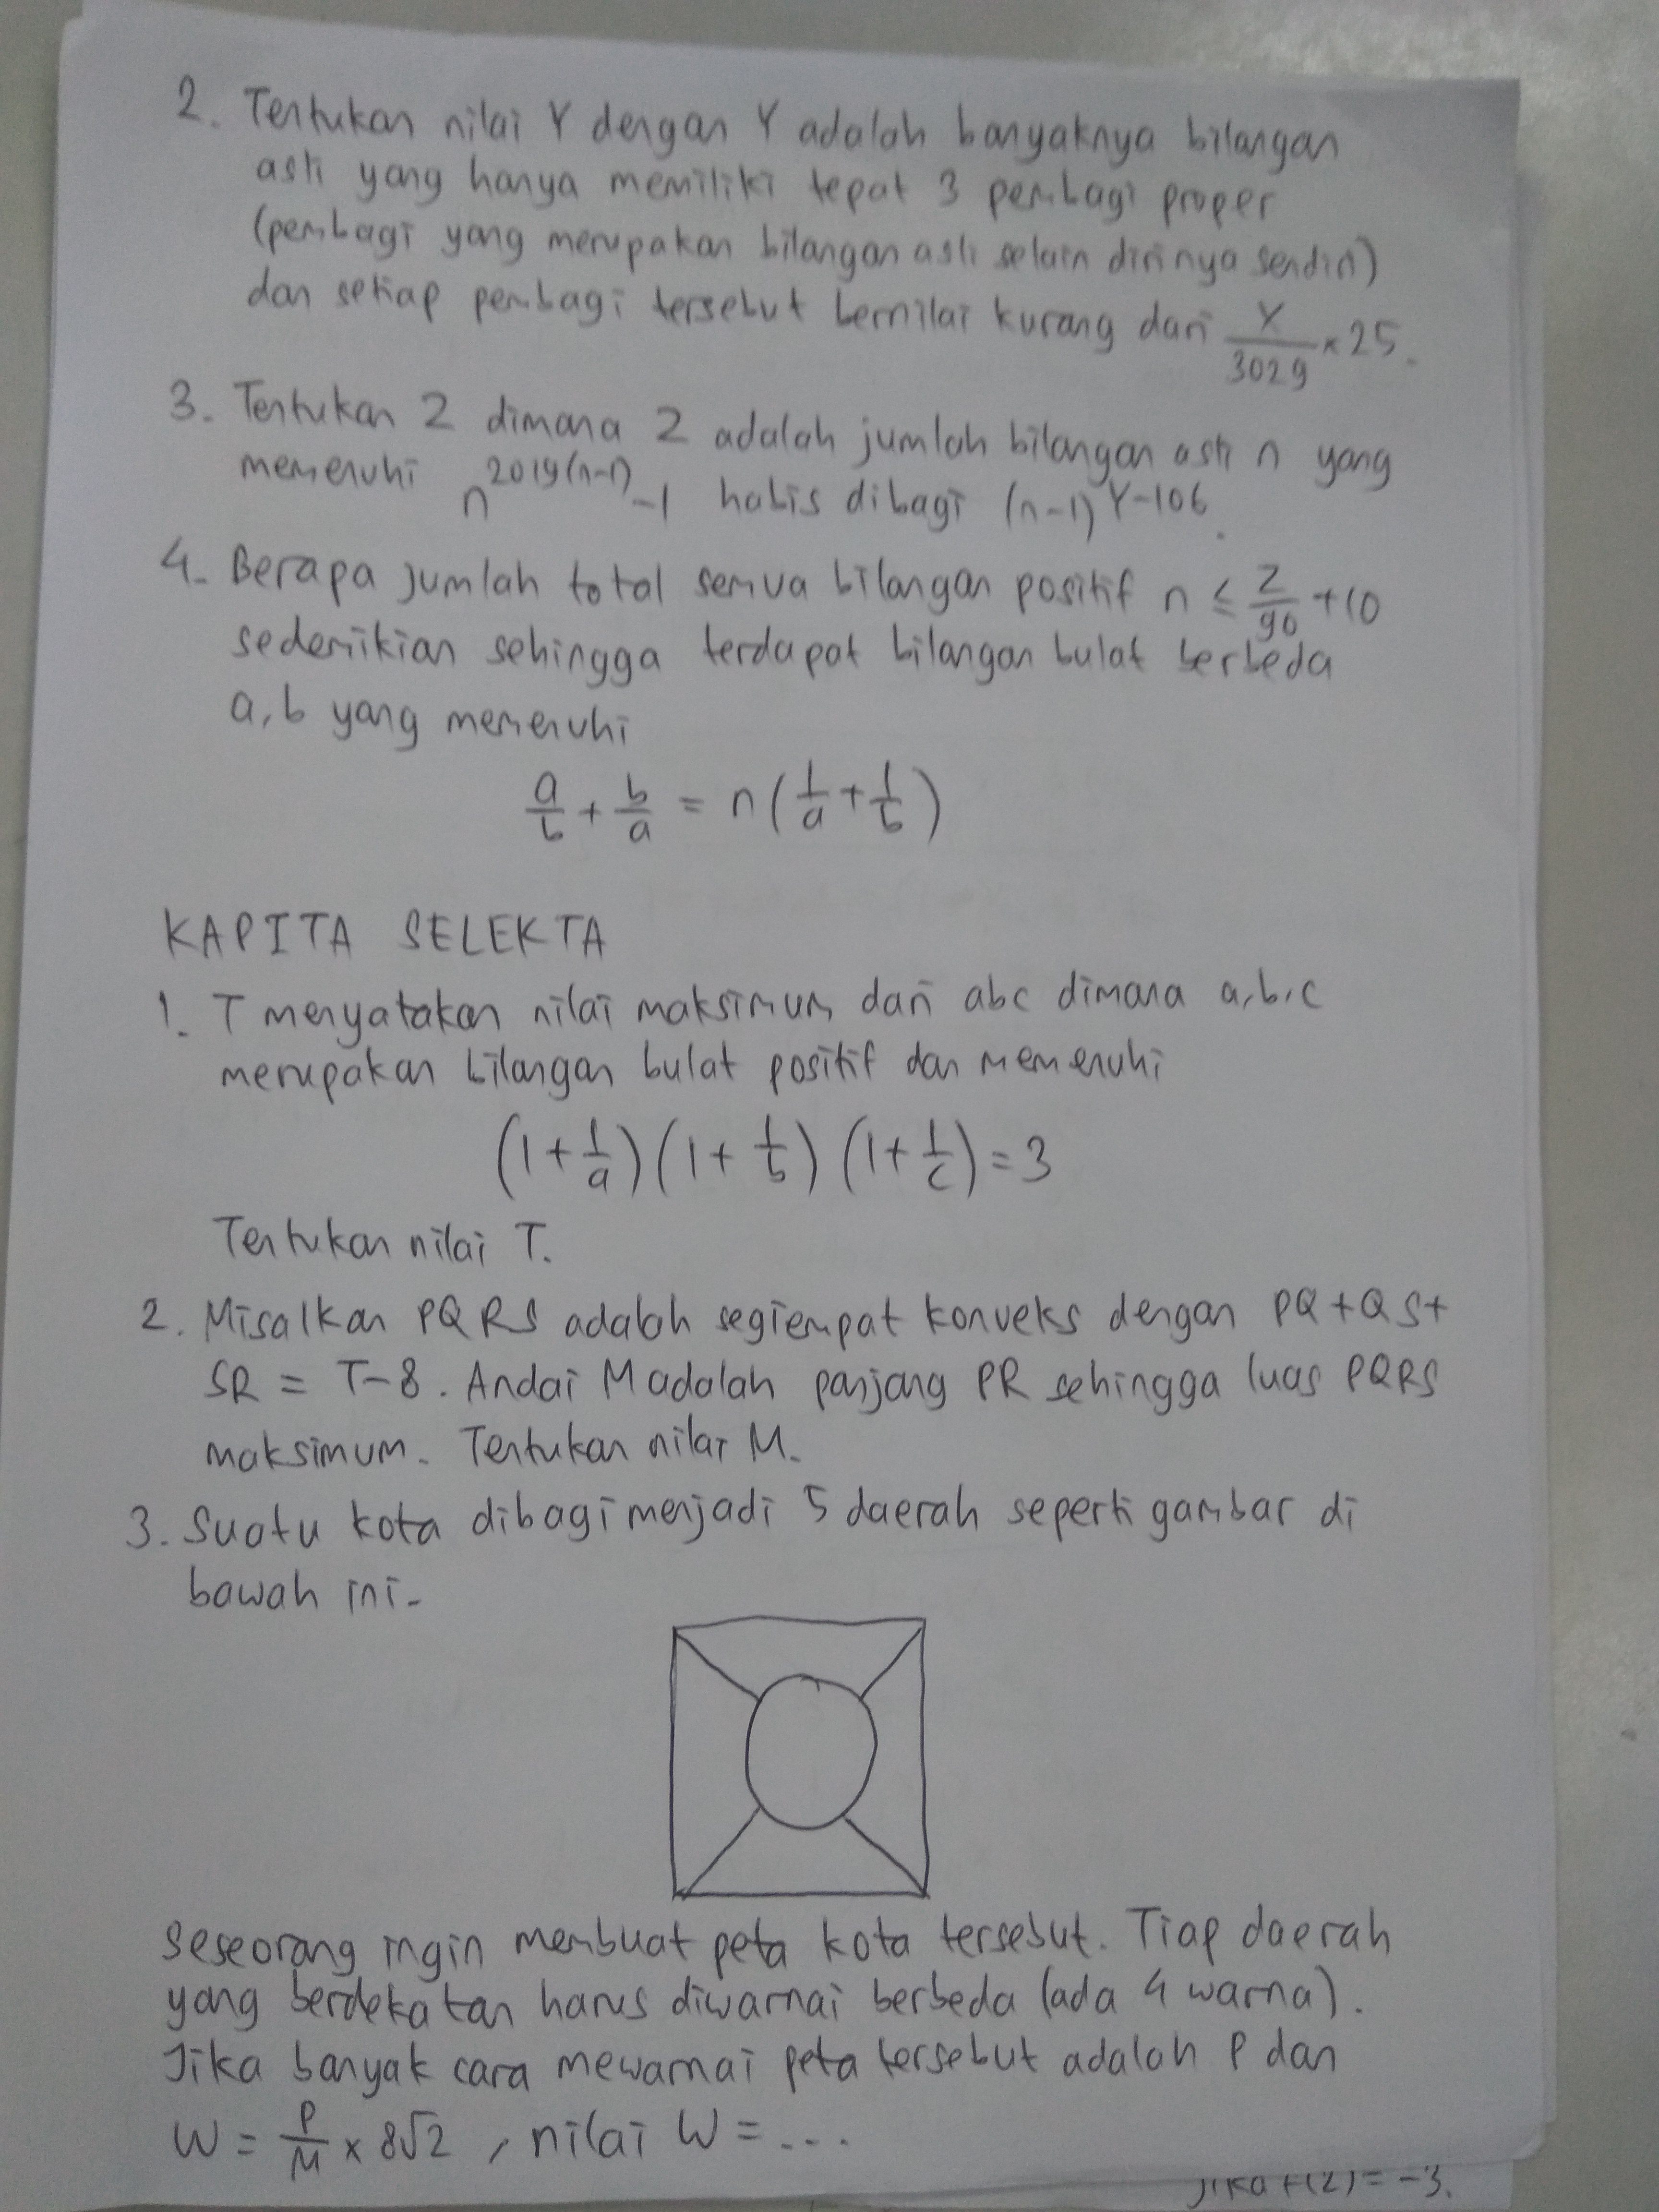 2. Tentukan nilai Y dengan Y adalah banyaknya bilangan
asli yang hanya memiliki tepat 3 pembagi proper
(pembagi yang merupakan bilangan asli selain dirinya sendiri)
dan setiap pembagi tersebut bernilai kurang dari X/3029 × 25.
3. Tentukan Z dimana Z adalah jumlah bilangan asli n yang
memenuhi n^2019(n-1) - 1 habis dibagi (n-1)^Y-106.
4. Berapa jumlah total semua bilangan positif n ≤ Z/90 + 10
sedemikian sehingga terdapat bilangan bulat berbeda
a, b yang memenuhi
a/b + b/a = n(1/a + 1/b)
KAPITA SELEKTA
1. T menyatakan nilai maksimum dari abc dimana a,b,c
merupakan bilangan bulat positif dan memenuhi
(1 + 1/a)(1 + 1/b)(1 + 1/c) = 3
Tentukan nilai T.
2. Misalkan PQRS adalah segiempat konveks dengan PQ + QS +
SR = T-8. Andai M adalah panjang PR sehingga luas PQRS
maksimum. Tentukan nilai M.
3. Suatu kota dibagi menjadi 5 daerah seperti gambar di
bawah ini.
Seseorang ingin membuat peta kota tersebut. Tiap daerah
yang berdekatan harus diwarnai berbeda (ada 4 warna).
Jika banyak cara mewarnai peta tersebut adalah P dan
W = P/M × 8√2, nilai W = ...
Jika f(2) = -3.